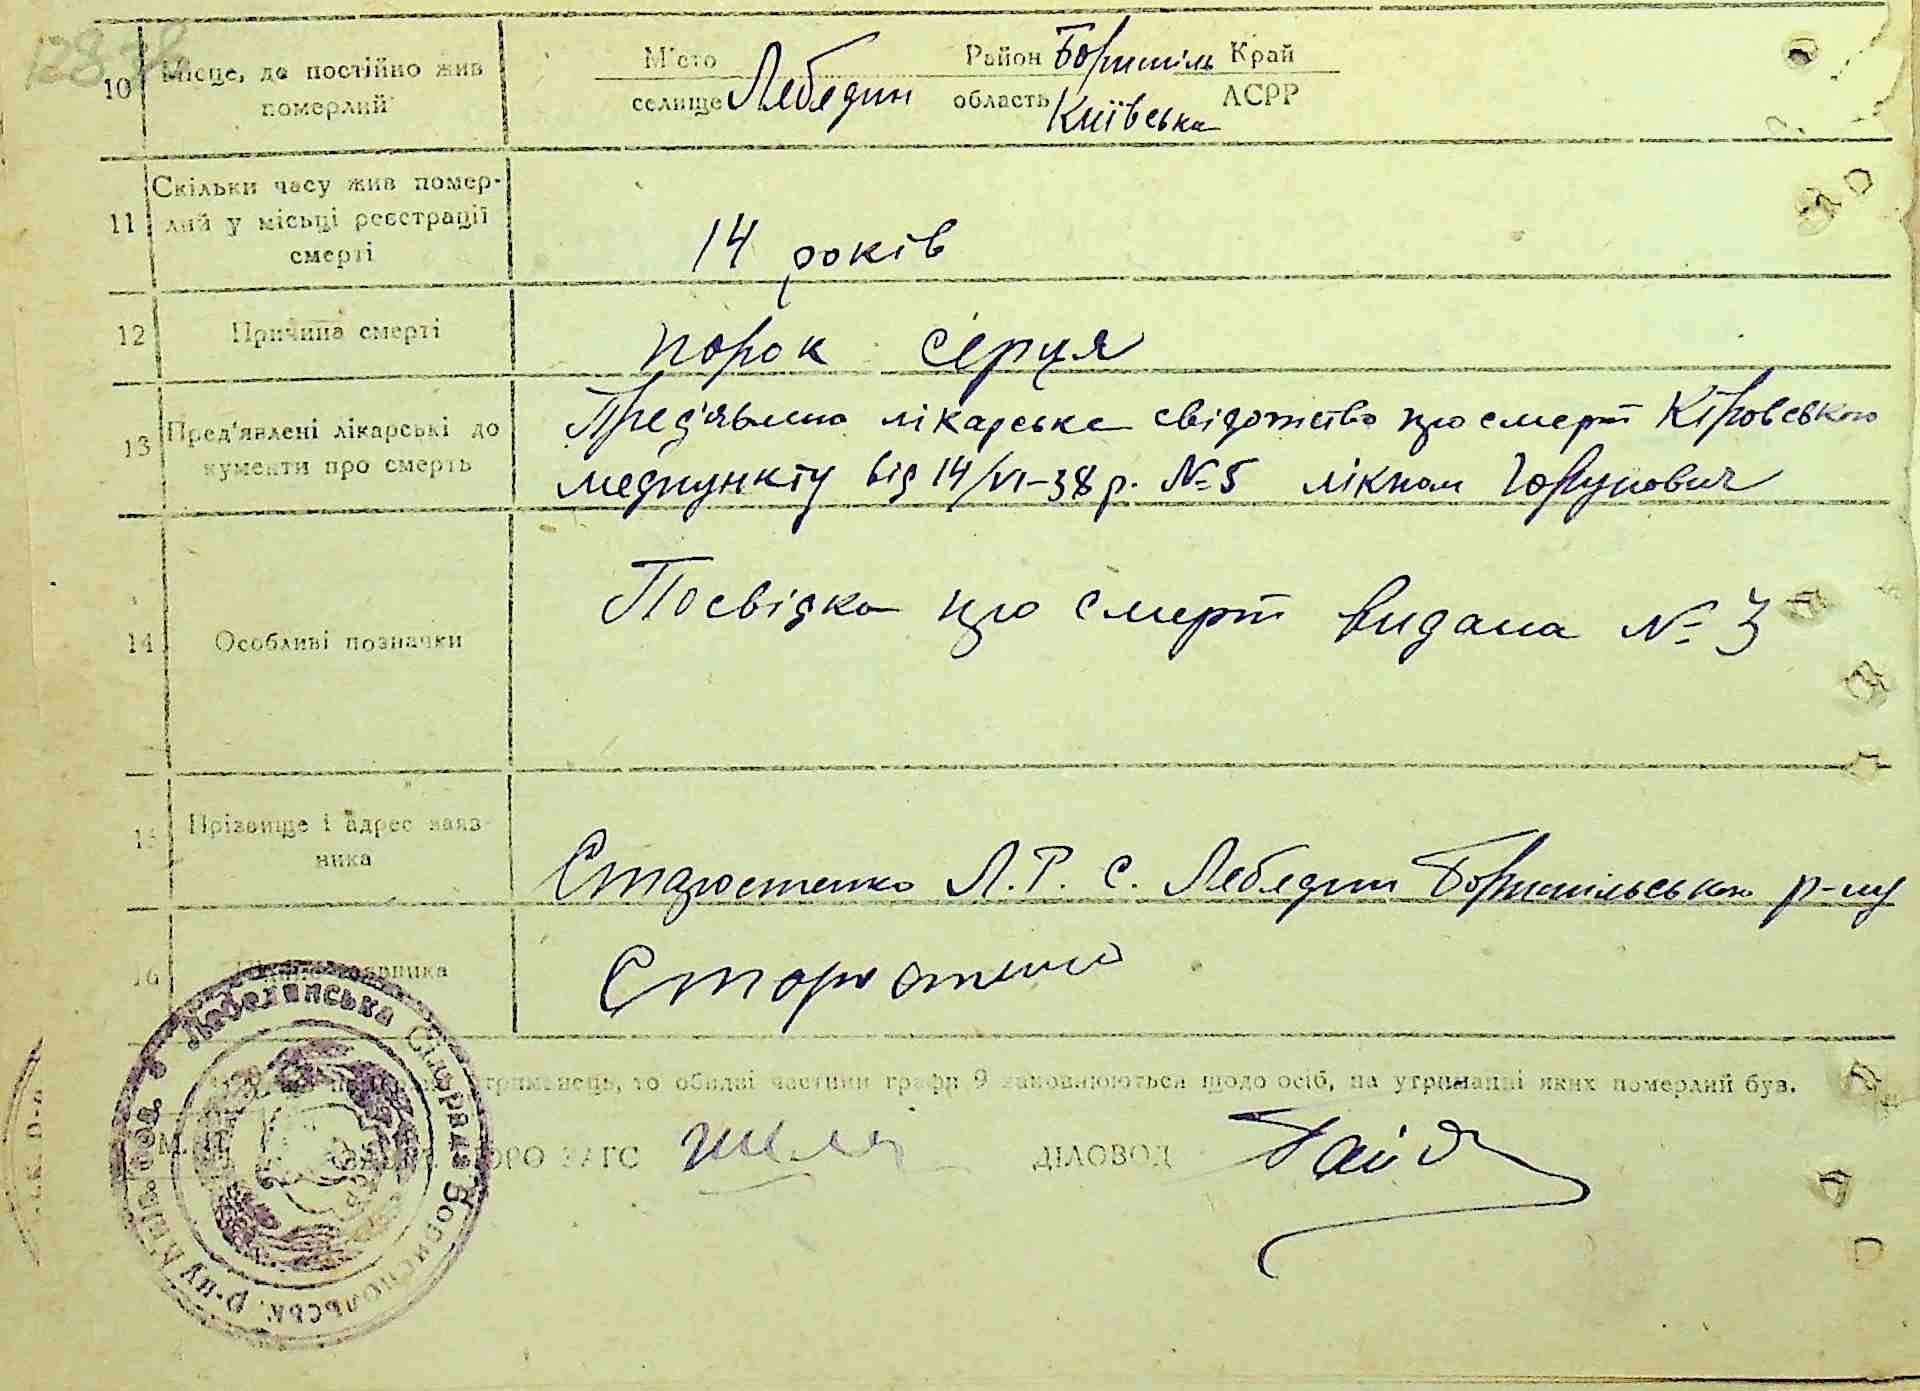 10 Місце, де постійно жив померлий
М'сто селище Лебедин Район Бориспіль Край
область Київська АСРР
11 Скільки часу жив помер-
лий у місьці реєстрації
смерті
14 років
12 Причина смерті
порок серця
13 Пред'явлені лікарські до
кументи про смерть
Пред'явлено лікарське свідотство про смерт Кіровського
медпункту від 14/VI-38 р. №5 лікпом
14 Особливі позначки
Посвідка про смерт видана № 3
15 Прізвище і адрес заяв-
ника
Старостенко Л.Р. С. Лебедин Бориспільського р-ну
16
Старостенко
утриманець, то обидві частини графи 9 заповнюються щодо осіб, на утриманні яких померлий був.
М. П. БЮРО ЗАГС ДІЛОВОД
Лебединська Сільрада Бориспольськ. р-ну